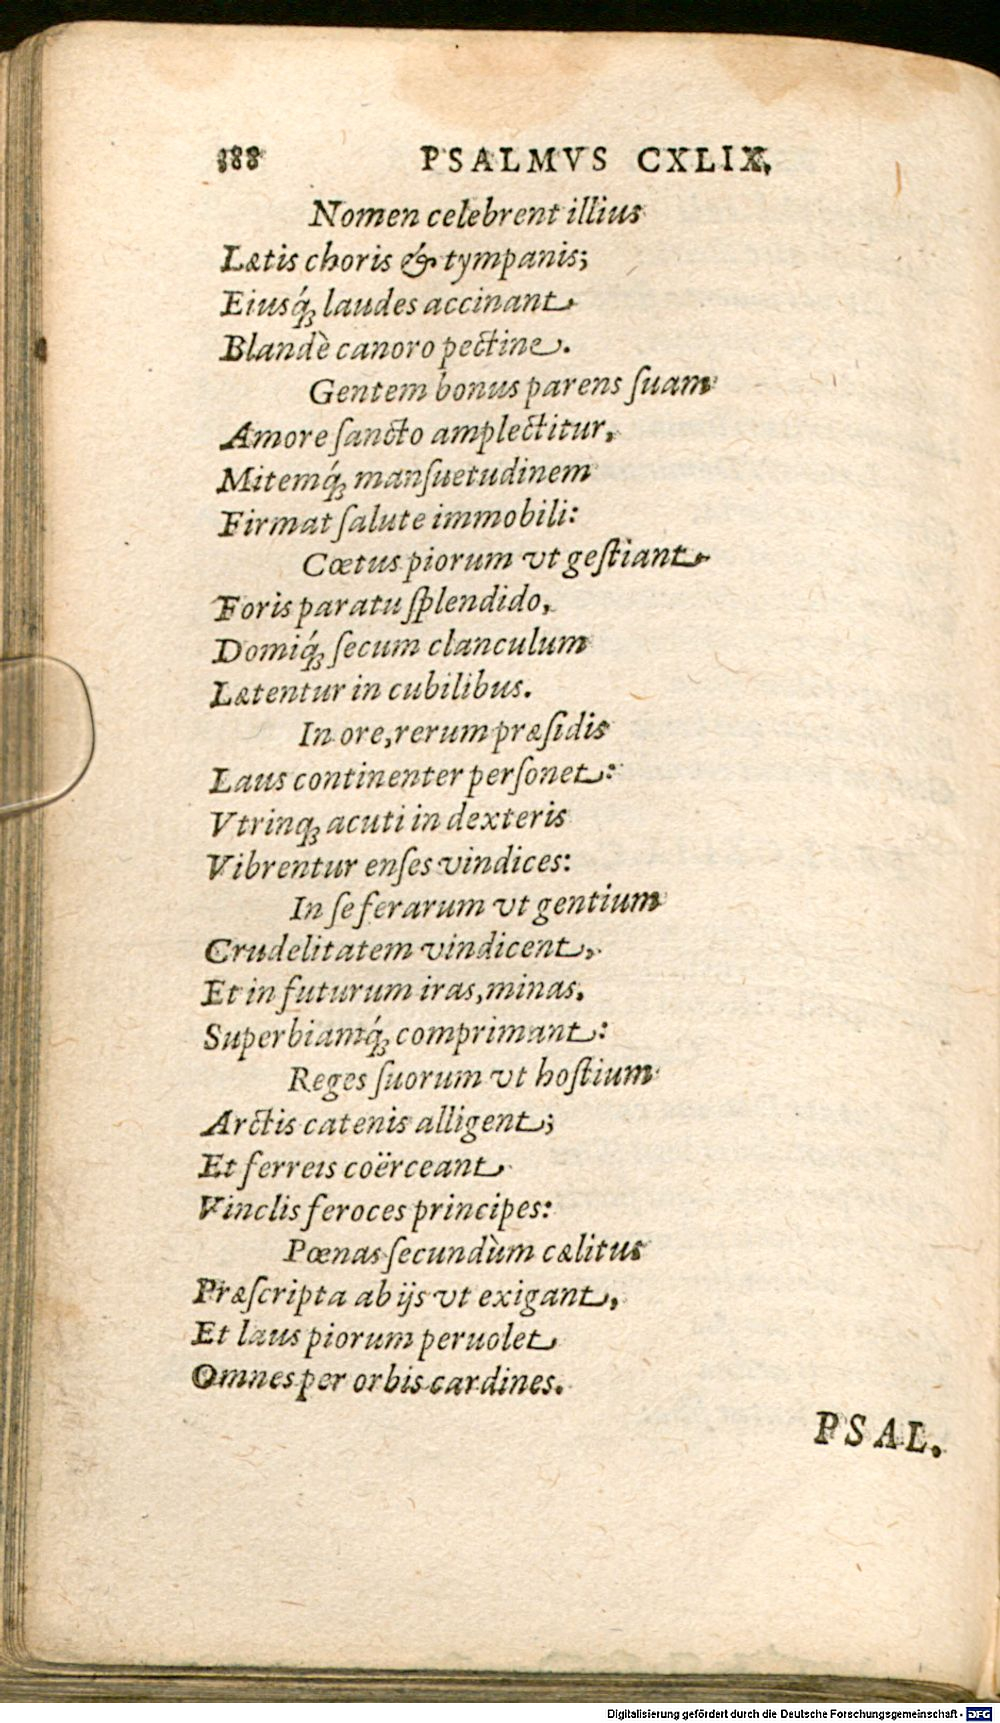 388 PSALMVS CXLIX.
Nomen celebrent illius
Lætis choris & tympanis;
Eiusq́; laudes accinant
Blandè canoro pectine.
Gentem bonus parens ſuam
Amore ſancto amplectitur,
Mitemq́; manſuetudinem
Firmat ſalute immobili:
Cœtus piorum vt geſtiant
Foris paratu ſplendido,
Domiq́; ſecum clanculum
Lætentur in cubilibus.
In ore, rerum præſidis
Laus continenter perſonet:
Vtrinq; acuti in dexteris
Vibrentur enſes vindices:
In ſe ferarum vt gentium
Crudelitatem vindicent,
Et in futurum iras, minas,
Superbiamq́; comprimant:
Reges ſuorum vt hoſtium
Arctis catenis alligent;
Et ferreis coërceant
Vinclis feroces principes:
Pœnas ſecundùm cælitus
Præſcripta ab ijs vt exigant,
Et laus piorum peruolet
Omnes per orbis cardines.
PSAL.
Digitalisierung gefördert durch die Deutsche Forschungsgemeinschaft - DFG